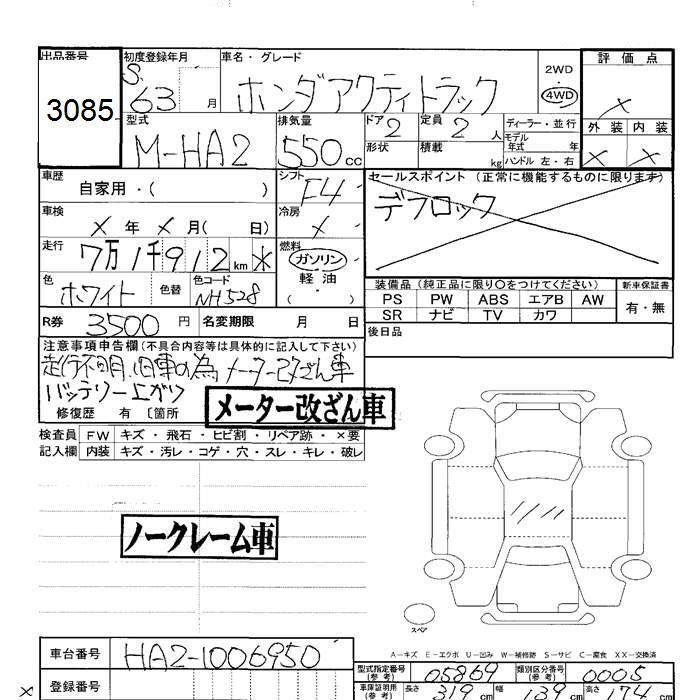 出品番号 初度登録年月 車名・グレード 評価点
3085 S. 63 月 ホンダアクティトラック 2WD 4WD ×
型式 排気量 ドア 定員 ディーラー・並行 外装 内装
M-HA2 550 cc 2 2 人 モデル年式 年 × ×
形状 積載 kg ハンドル 左・右
車歴 自家用・( ) シフト F4 セールスポイント (正常に機能するものに限ります)
車検 × 年 × 月( 日) 冷房 × デフロック
走行 7万1千912 km * 燃料 ガソリン 軽油 ( )
色 ホワイト 色替 色コード NH528
装備品 (純正品に限り〇をつけてください) 新車保証書
PS PW ABS エアB AW 有・無
SR ナビ TV カワ
R券 3500 円 名変期限 月 日
後日品
注意事項申告欄(不具合内容等は具体的に記入して下さい)
走行不明、旧車の為、メーター改ざん車
バッテリー上がり
修復歴 有 〔箇所
メーター改ざん車
検査員 FW キズ・飛石・ヒビ割・リペア跡・×要
記入欄 内装 キズ・汚レ・コゲ・穴・スレ・キレ・破レ
ノークレーム車
スペア
A－キズ E－エクボ U－凹み W－補修跡 S－サビ C－腐食 XX－交換済
車台番号 HA2-1006950
型式指定番号(参考) 05869 類別区分番号(参考) 0005
登録番号
車庫証明用(参考) 長さ 319 cm 幅 139 cm 高さ 174 cm
×